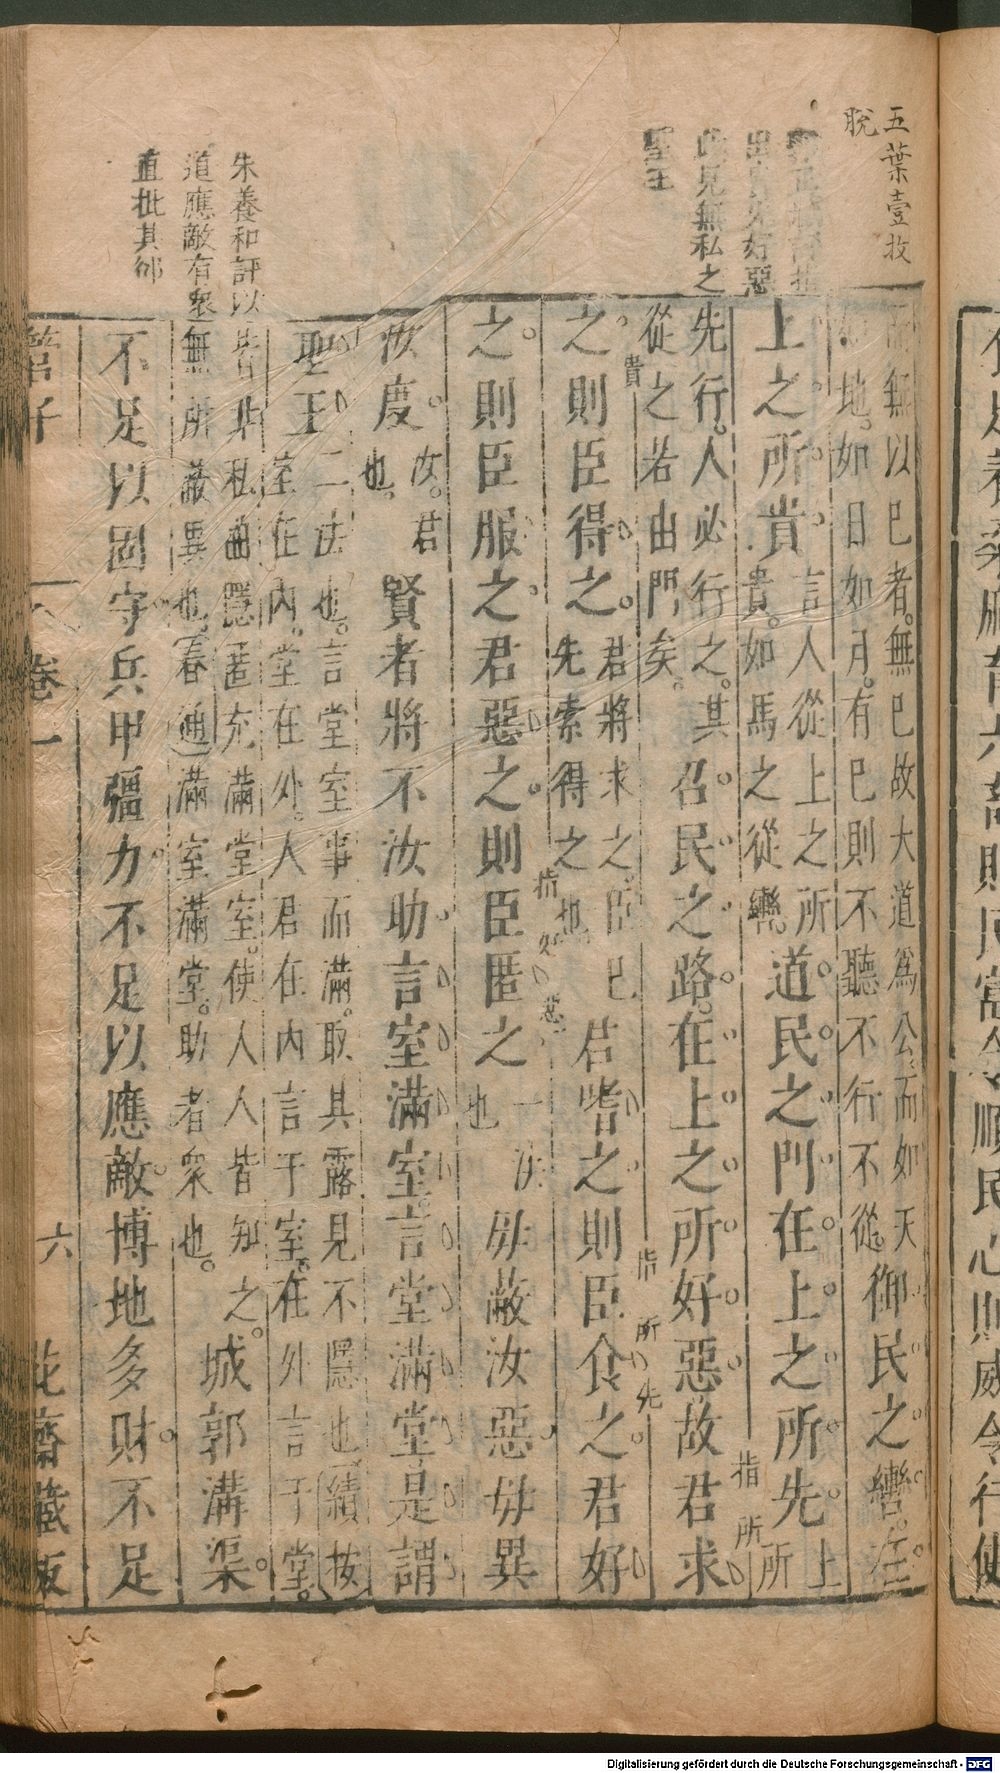 五葉壹㧈
脫
出貴先好惡
此見無私之
聖王
朱養和評以
道應敵有衆
直批其郤
無以巳者。無巳故大道爲公。而如天
地。如日如月。有巳則不聽不行不從。
御民之轡。在
上之所貴
言人從上之所
貴。如馬之從轡。
道民之門在上之所先
上
所
先行。人必行之。其
從之若由門矣。
召民之路。在上之所好惡故君求
之則臣得之。
君將求之。臣巳
先索得之也
君嗜之則臣食之君好
之則臣服之君惡之則臣匿之
一法
也
毋蔽汝惡毋異
汝度
汝。君
也。
賢者將不汝助言室滿室言堂滿堂是謂
聖王
二法也。言堂室事而滿。取其露見不隱也續按
室在內。堂在外。人君在內言于室。在外言于堂。
皆非私曲隱匿充滿堂室。使人人皆知之。
無所蔽異也。春通滿室滿堂。助者衆也。
城郭溝渠
不足以固守兵甲彊力不足以應敵。博地多財不足
貴
指所先
指所
指好惡
管子
卷一
六
花齋藏板
Digitalisierung gefördert durch die Deutsche Forschungsgemeinschaft - DFG